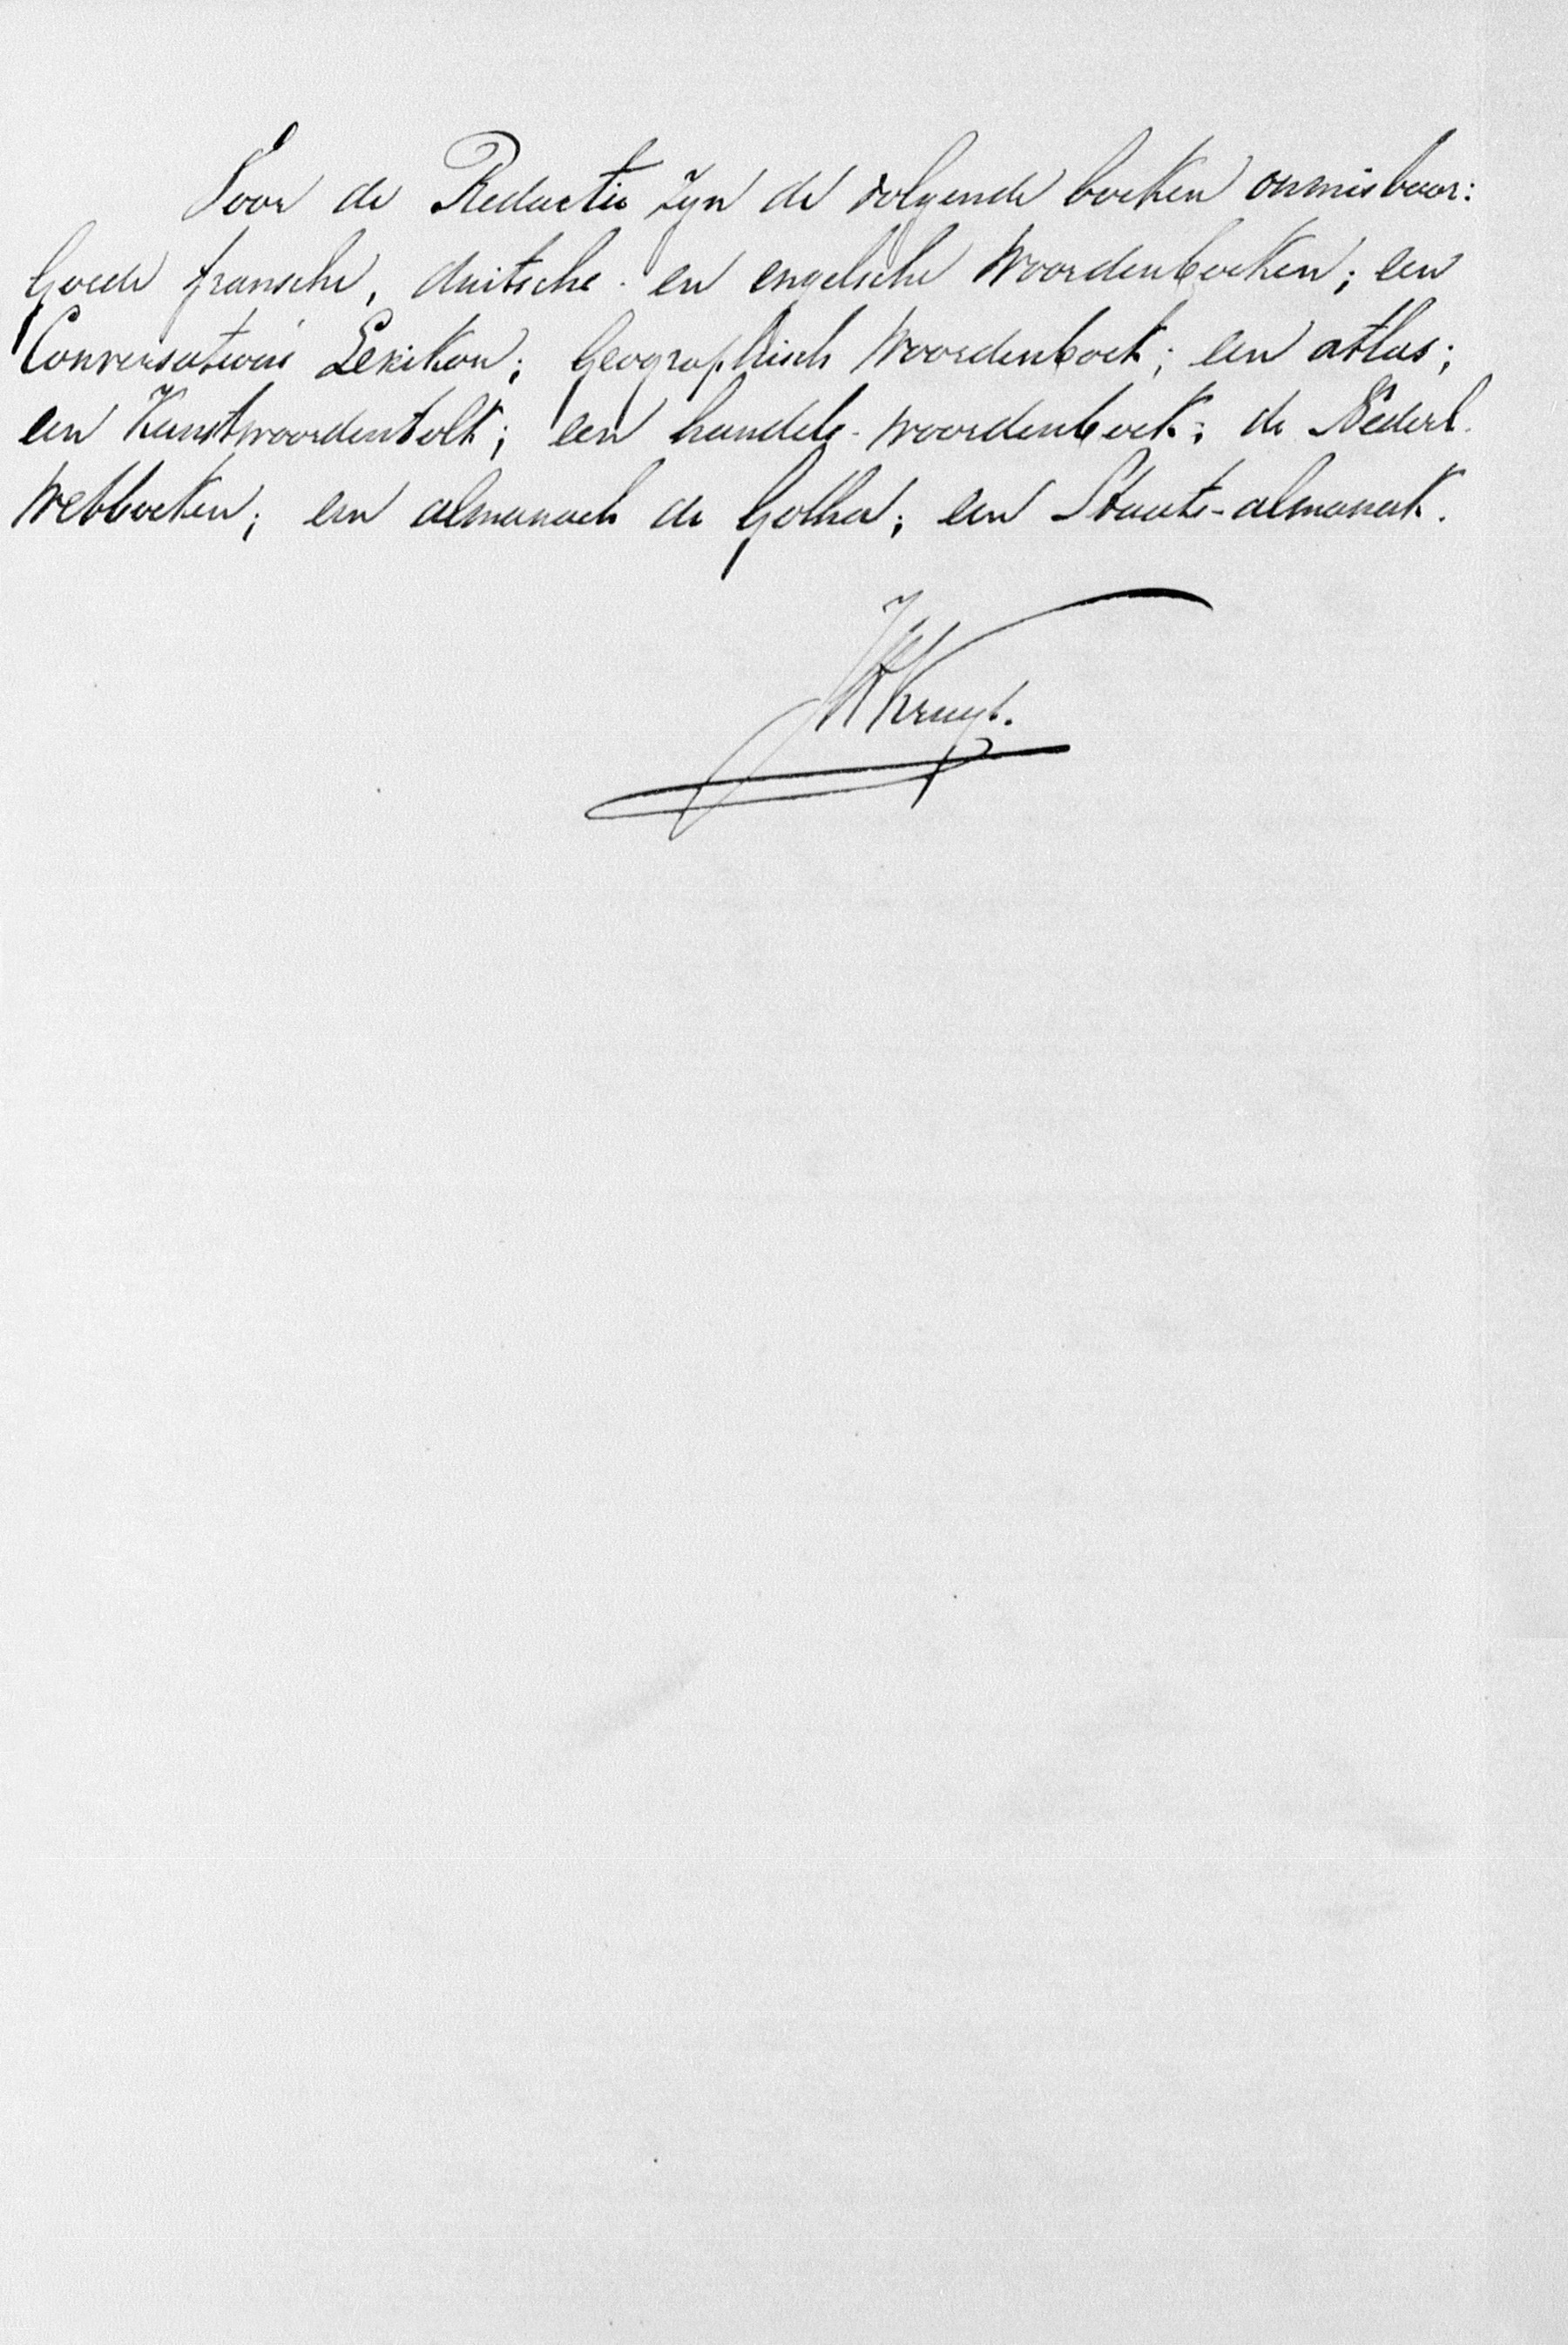 Voor de Redactie zyn de volgende boeken onmisbaar:
Goede fransche, duitsche en engelsche Woordenboeken; een
Conversations Lexikon; Geographisch Woordenboek; een atlas;
een Kunstwoordentolk; een handels-woordenboek; de Nederl.
Wetboeken; een almanach de Gotha; een Staats-almanak.
Kruyt.